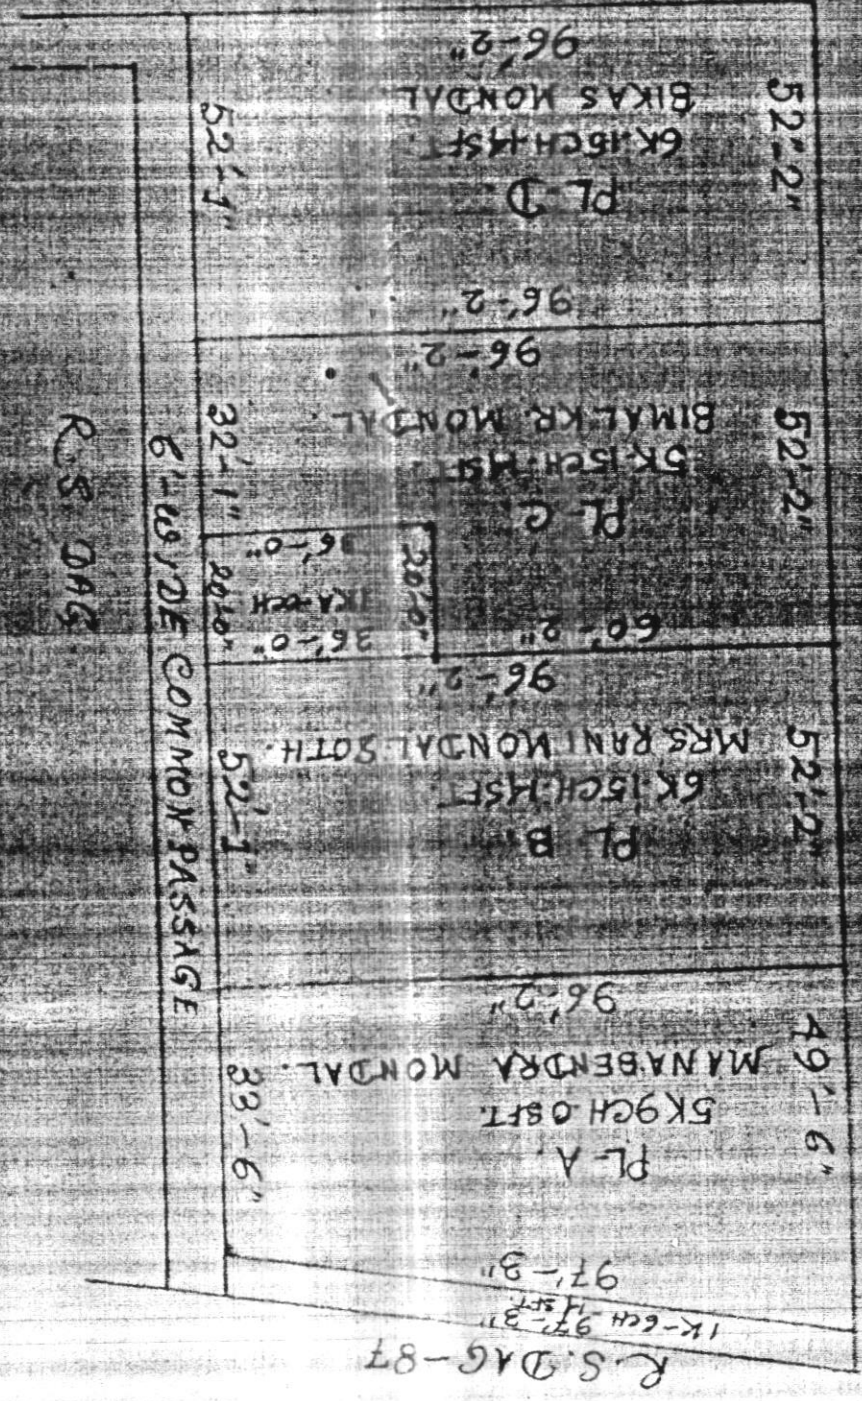 R.S. DAG-87
1K-6CH-14SFT
97'-3"
97'-3"
PL-A.
5K9CH0SFT.
MANABENDRA MONDAL.
96'-2"
49'-6"
33'-6"
PL B.
6K.15CH.14SFT.
MRS RANI MONDAL & OTH.
96'-2"
52'-2"
52'-1"
60'-2"
36'-0"
1KA-0CH
36'-0"
20'-0"
20'-0"
PL-C.
5K.15CH.14SFT.
BIMAL KR. MONDAL.
96'-2"
52'-2"
32'-1"
96'-2"
PL-D.
6K.15CH.14SFT.
BIKAS MONDAL
96'-2"
52'-2"
52'-1"
6'-WIDE COMMON PASSAGE
R.S. DAG.